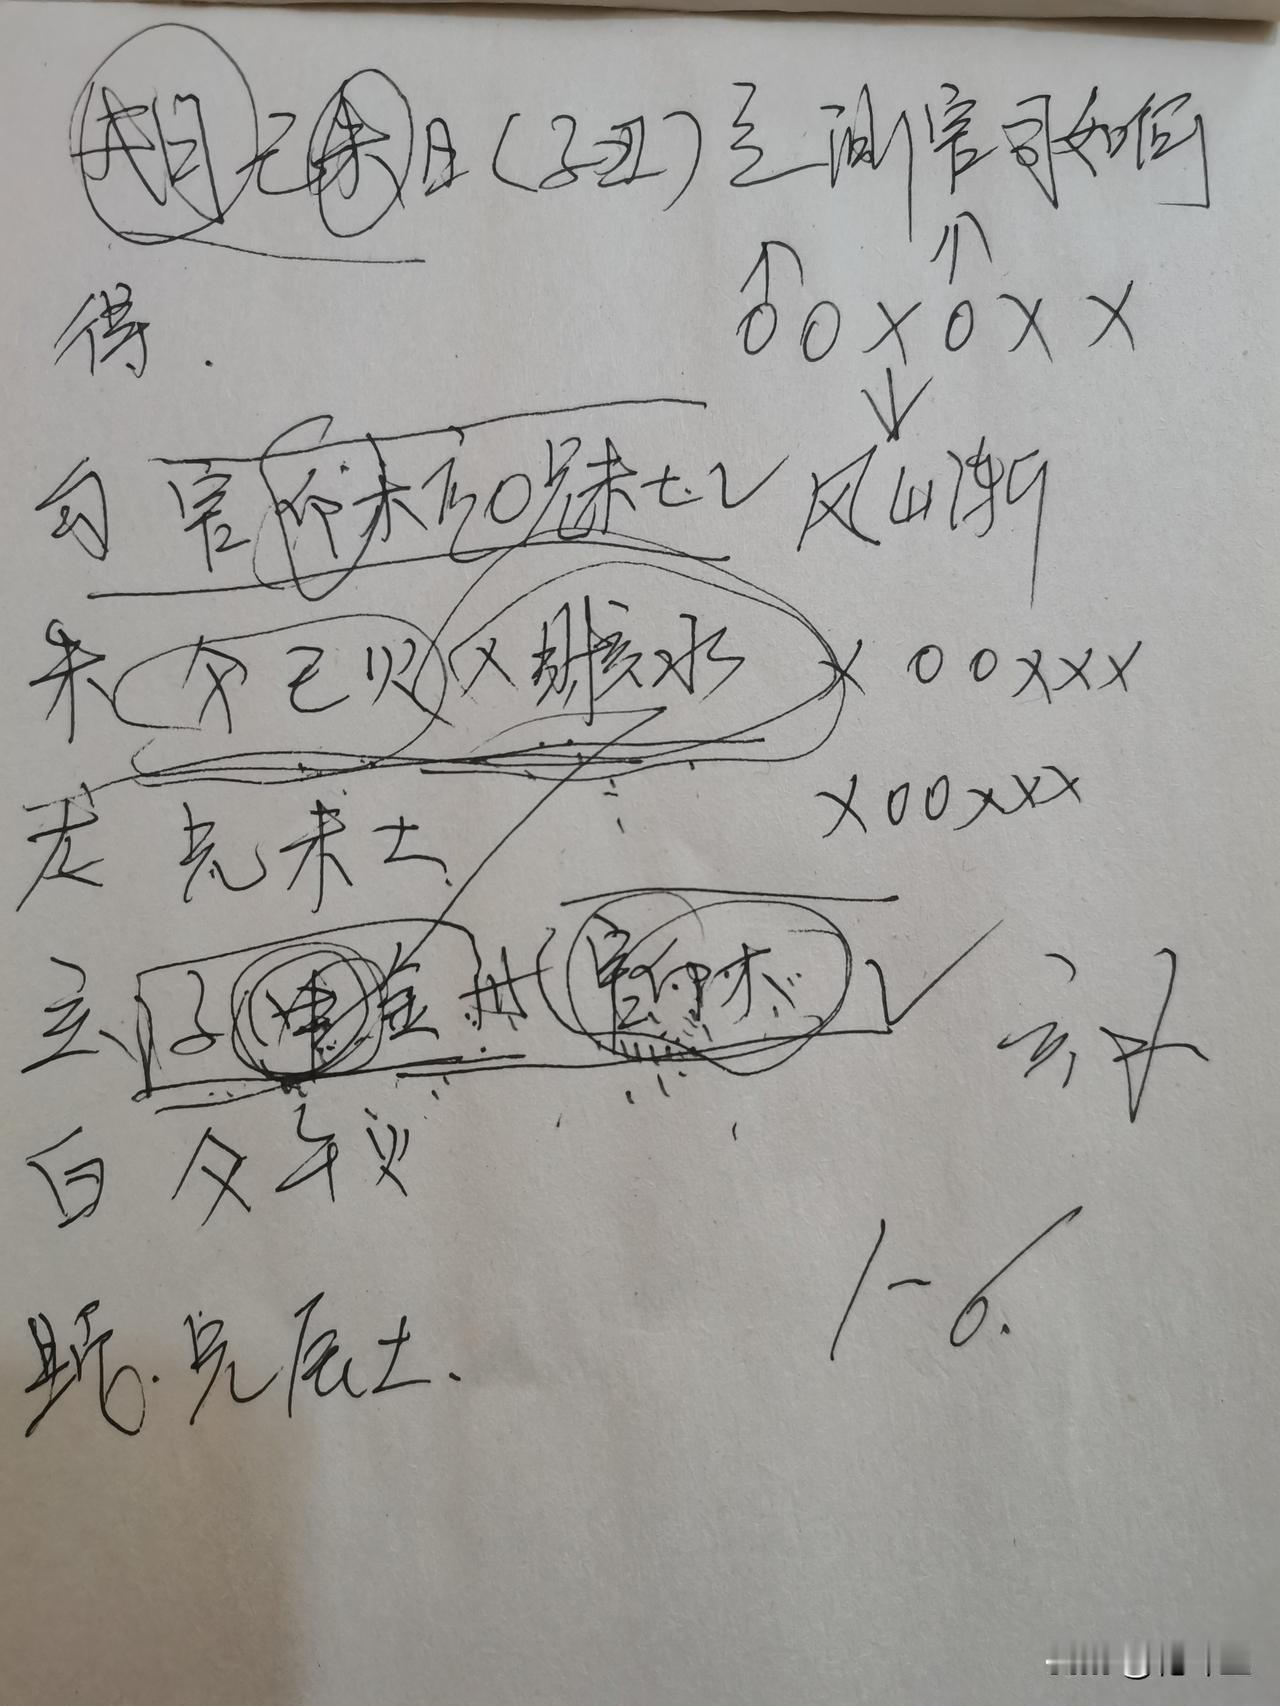 戌月乙未日(子丑)空测官司如何
得. OOXOXX
勾 官卯木 O 兄未土 风山渐
朱 父巳火 X 财亥水 X OOXXX
龙 兄未土 XOOXXX
玄 子申金 官卯木
白 父午火
兄辰土.
1-6.